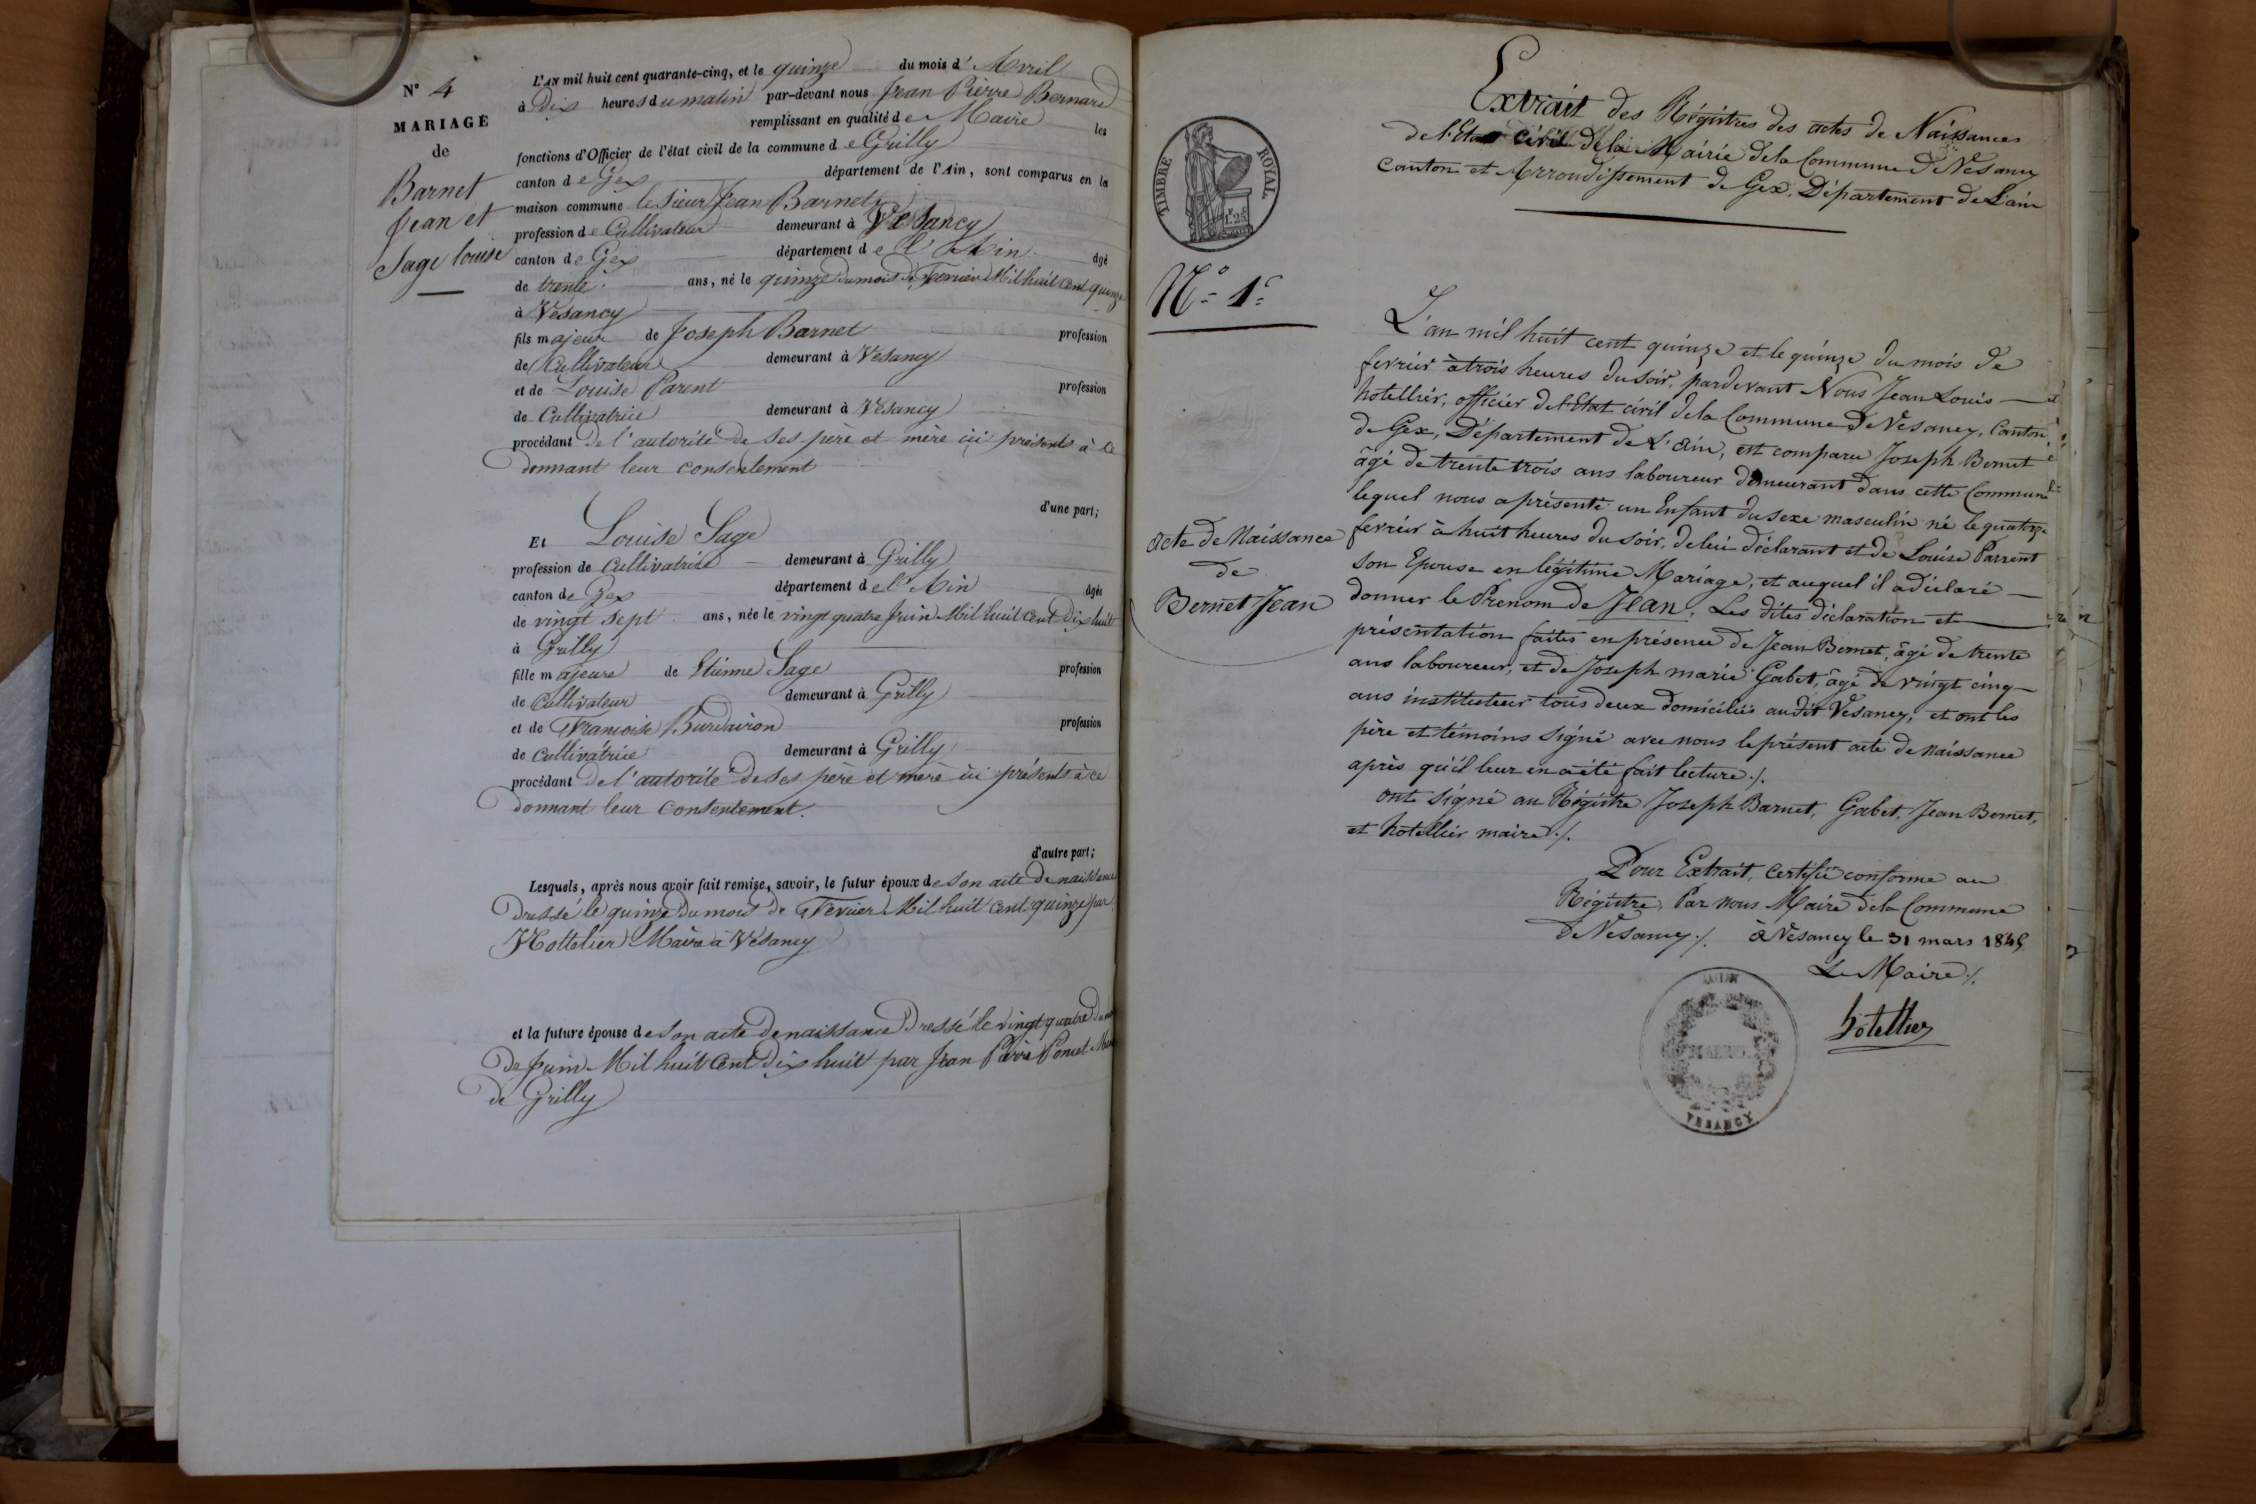 N° 4
MARIAGE
de
Barnet
Jean et
Sage louise
L'AN mil huit cent quarante-cinq, et le quinze du mois d' Avril
à Dix heures du matin par-devant nous Jean Pierre Bernard
remplissant en qualité de Maire les
fonctions d'Officier de l'état civil de la commune de Grilly
canton de Gex département de l'Ain, sont comparus en la
maison commune le Sieur Jean Barnet
profession de Cultivateur demeurant à Vesancy
canton de Gex département de l'Ain âgé
de trente ans, né le quinze du mois de Fevrier Mil huit Cent quinze
à Vésancy
fils majeur de Joseph Barnet profession
de Cultivateur demeurant à Vesancy
et de Louise Parent profession
de Cultivatrice demeurant à Vésancy
procédant De l'autorité De Ses père et mère ici présents à ce
donnant leur consentement
d'une part;
Et Louise Sage
profession de Cultivatrice demeurant à Grilly
canton de Gex département de l'Ain âgée
de vingt sept ans, née le vingt quatre Juin Mil huit Cent Dix huit
à Grilly
fille majeure de Etienne Sage profession
de Cultivateur demeurant à Grilly
et de Francoise Burdairon profession
de Cultivatrice demeurant à Grilly
procédant De l'autorité De Ses père et mère ici présents à ce
donnant leur Consentement.
d'autre part;
Lesquels, après nous avoir fait remise, savoir, le futur époux de Son acte De naissance
Dressé le quinze Du mois de Fevrier Mil huit Cent quinze par
Hottelier Maire à Vésancy
et la future épouse de Son acte De naissance Dressé le vingt quatre Du mois
De Juin Mil huit Cent Dix huit par Jean Pierre Poncet Maire
de Grilly
TIMBRE ROYAL
1f. 25c
N° 1er
Acte de Naissance
de
Bernet Jean
Extrait des Régistres des actes de Naissances
de l'Etat civil de la Mairie de la Commune de Vesancy
Canton et Arrondissement de Gex, Département de L'ain
L'an mil huit cent quinze et le quinze du mois de
fevrier à trois heures du soir, pardevant Nous Jean Louis
hotellier, officier de l'Etat civil de la Commune de Vesancy, Canton
de Gex, Département de L'Ain, est comparu Joseph Bernet
âgé de trente trois ans laboureur demeurant dans cette Commune
lequel nous a présenté un Enfant du sexe masculin né le quatorze
fevrier à huit heures du soir, de lui déclarant et de Louise Parrent
son Epouse en légitime Mariage, et auquel il a déclaré
donner le Prenom de Jean. Les dites déclaration et
présentation faites en présence de Jean Bernet, âgé de trente
ans laboureur, et de Joseph marie Gabet, âgé de vingt cinq
ans instituteur tous deux domiciliés audit Vesancy, et ont les
père et témoins signé avec nous le présent acte de naissance
après qu'il leur en a été fait lecture ./.
ont signé au Régistre Joseph Barnet, Gabet, Jean Bernet,
et hotellier maire ./.
Pour Extrait, certifié conforme au
Régistre, Par nous Maire de la Commune
de Vesancy ./. à Vesancy le 31 mars 1845
Le Maire ./.
hotellier
MAIRIE
VESANCY